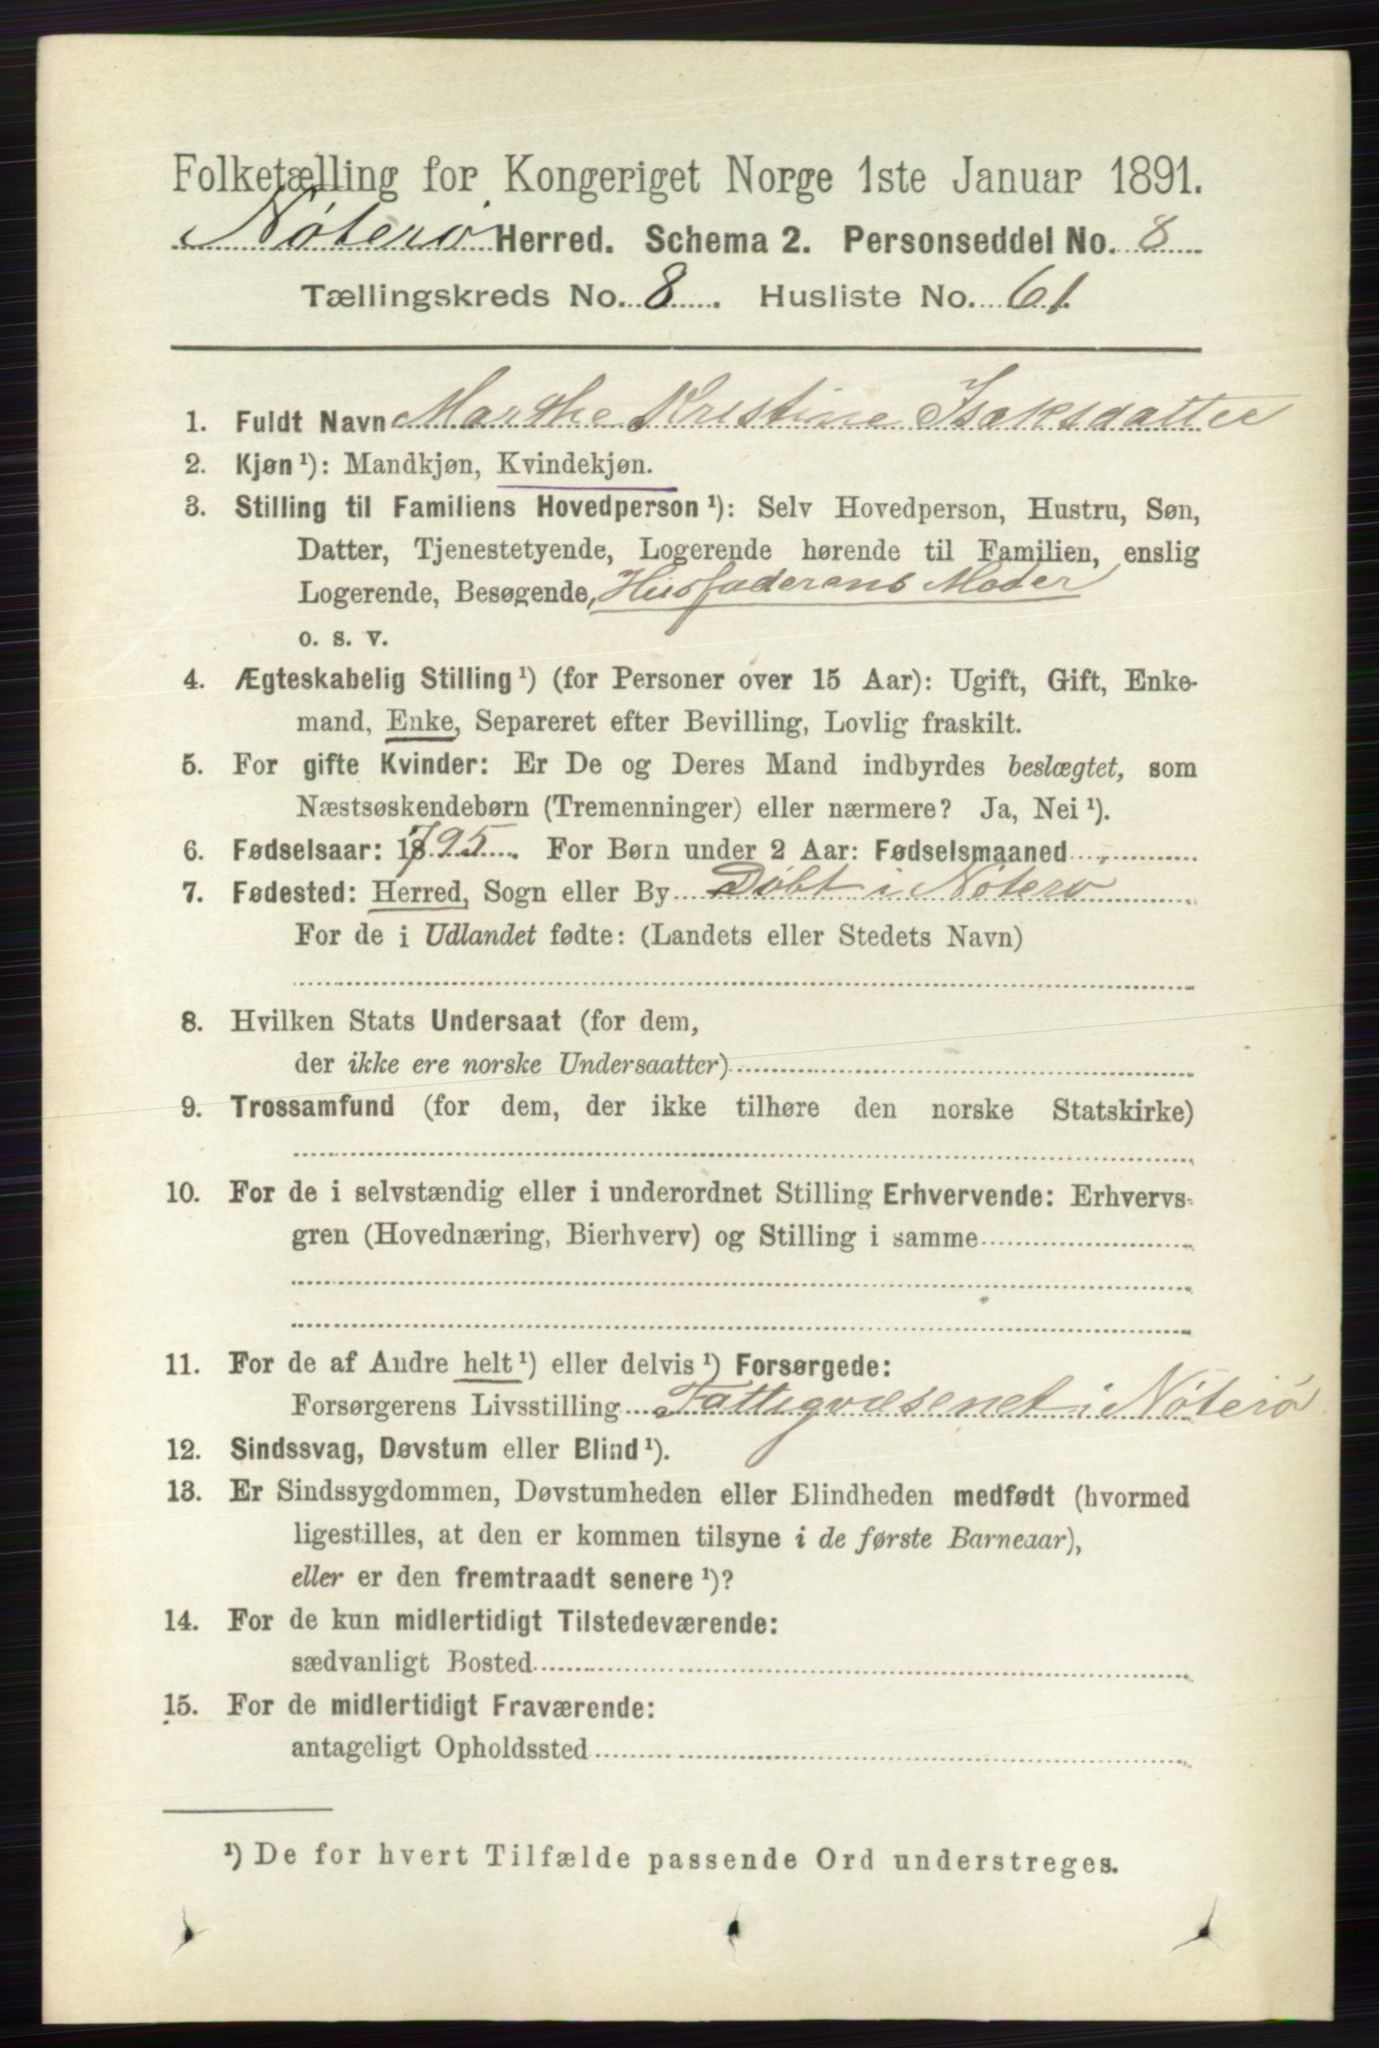 Folketælling for Kongeriget Norge 1ste Januar 1891.
Nøterø Herred. Schema 2. Personseddel No. 8
Tællingskreds No. 8. Husliste No. 61.
1. Fuldt Navn Marthe Kristine Isaksdatter
2. Kjøn ¹): Mandkjøn, Kvindekjøn.
3. Stilling til Familiens Hovedperson ¹): Selv Hovedperson, Hustru, Søn,
Datter, Tjenestetyende, Logerende hørende til Familien, enslig
Logerende, Besøgende, Husfaderens Moder
o. s. v.
4. Ægteskabelig Stilling ¹) (for Personer over 15 Aar): Ugift, Gift, Enke-
mand, Enke, Separeret efter Bevilling, Lovlig fraskilt.
5. For gifte Kvinder: Er De og Deres Mand indbyrdes beslægtet, som
Næstsøskendebørn (Tremenninger) eller nærmere? Ja, Nei ¹).
6. Fødselsaar: 1795. For Børn under 2 Aar: Fødselsmaaned
7. Fødested: Herred, Sogn eller By Døbt i Nøterø
For de i Udlandet fødte: (Landets eller Stedets Navn)
8. Hvilken Stats Undersaat (for dem,
der ikke ere norske Undersaatter)
9. Trossamfund (for dem, der ikke tilhøre den norske Statskirke)
10. For de i selvstændig eller i underordnet Stilling Erhvervende: Erhvervs-
gren (Hovednæring, Bierhverv) og Stilling i samme
11. For de af Andre helt ¹) eller delvis ¹) Forsørgede:
Forsørgerens Livsstilling Fattigvæsenet i Nøterø
12. Sindssvag, Døvstum eller Blind ¹).
13. Er Sindssygdommen, Døvstumheden eller Blindheden medfødt (hvormed
ligestilles, at den er kommen tilsyne i de første Barneaar),
eller er den fremtraadt senere ¹)?
14. For de kun midlertidigt Tilstedeværende:
sædvanligt Bosted
15. For de midlertidigt Fraværende:
antageligt Opholdssted
¹) De for hvert Tilfælde passende Ord understreges.